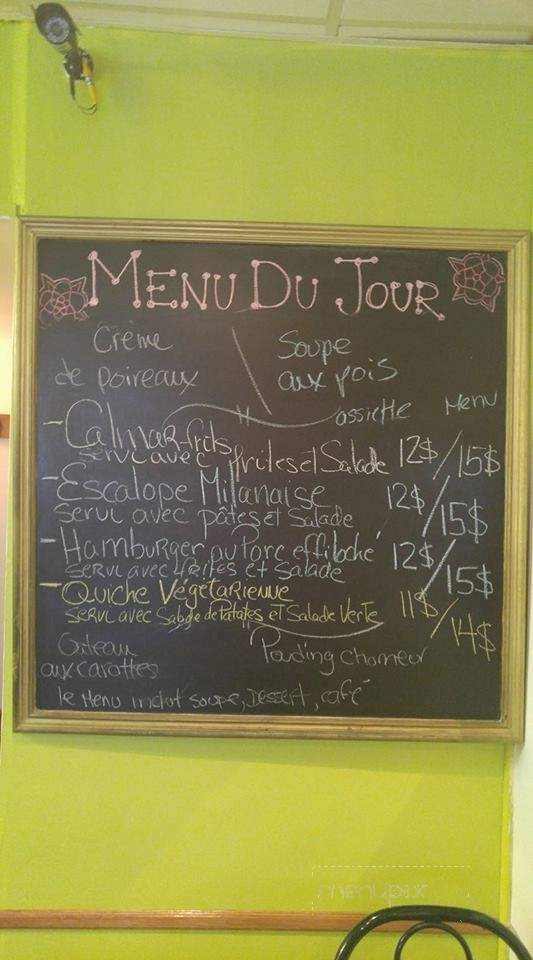 MENU DU JOUR
Crème Soupe
de poireaux aux pois
assiette Menu
-Calmar frits
servi avec frites et Salade 12$/15$
-Escalope Milanaise 12$/15$
servi avec pâtes et Salade
-Hamburger au Porc effiloché 12$/15$
servi avec frites et Salade
-Quiche Végétarienne 11$/14$
servi avec Salade de Patates et Salade Verte
Gateau Pouding Chomeur
aux carottes
le Menu inclut soupe, Dessert, café
menupix